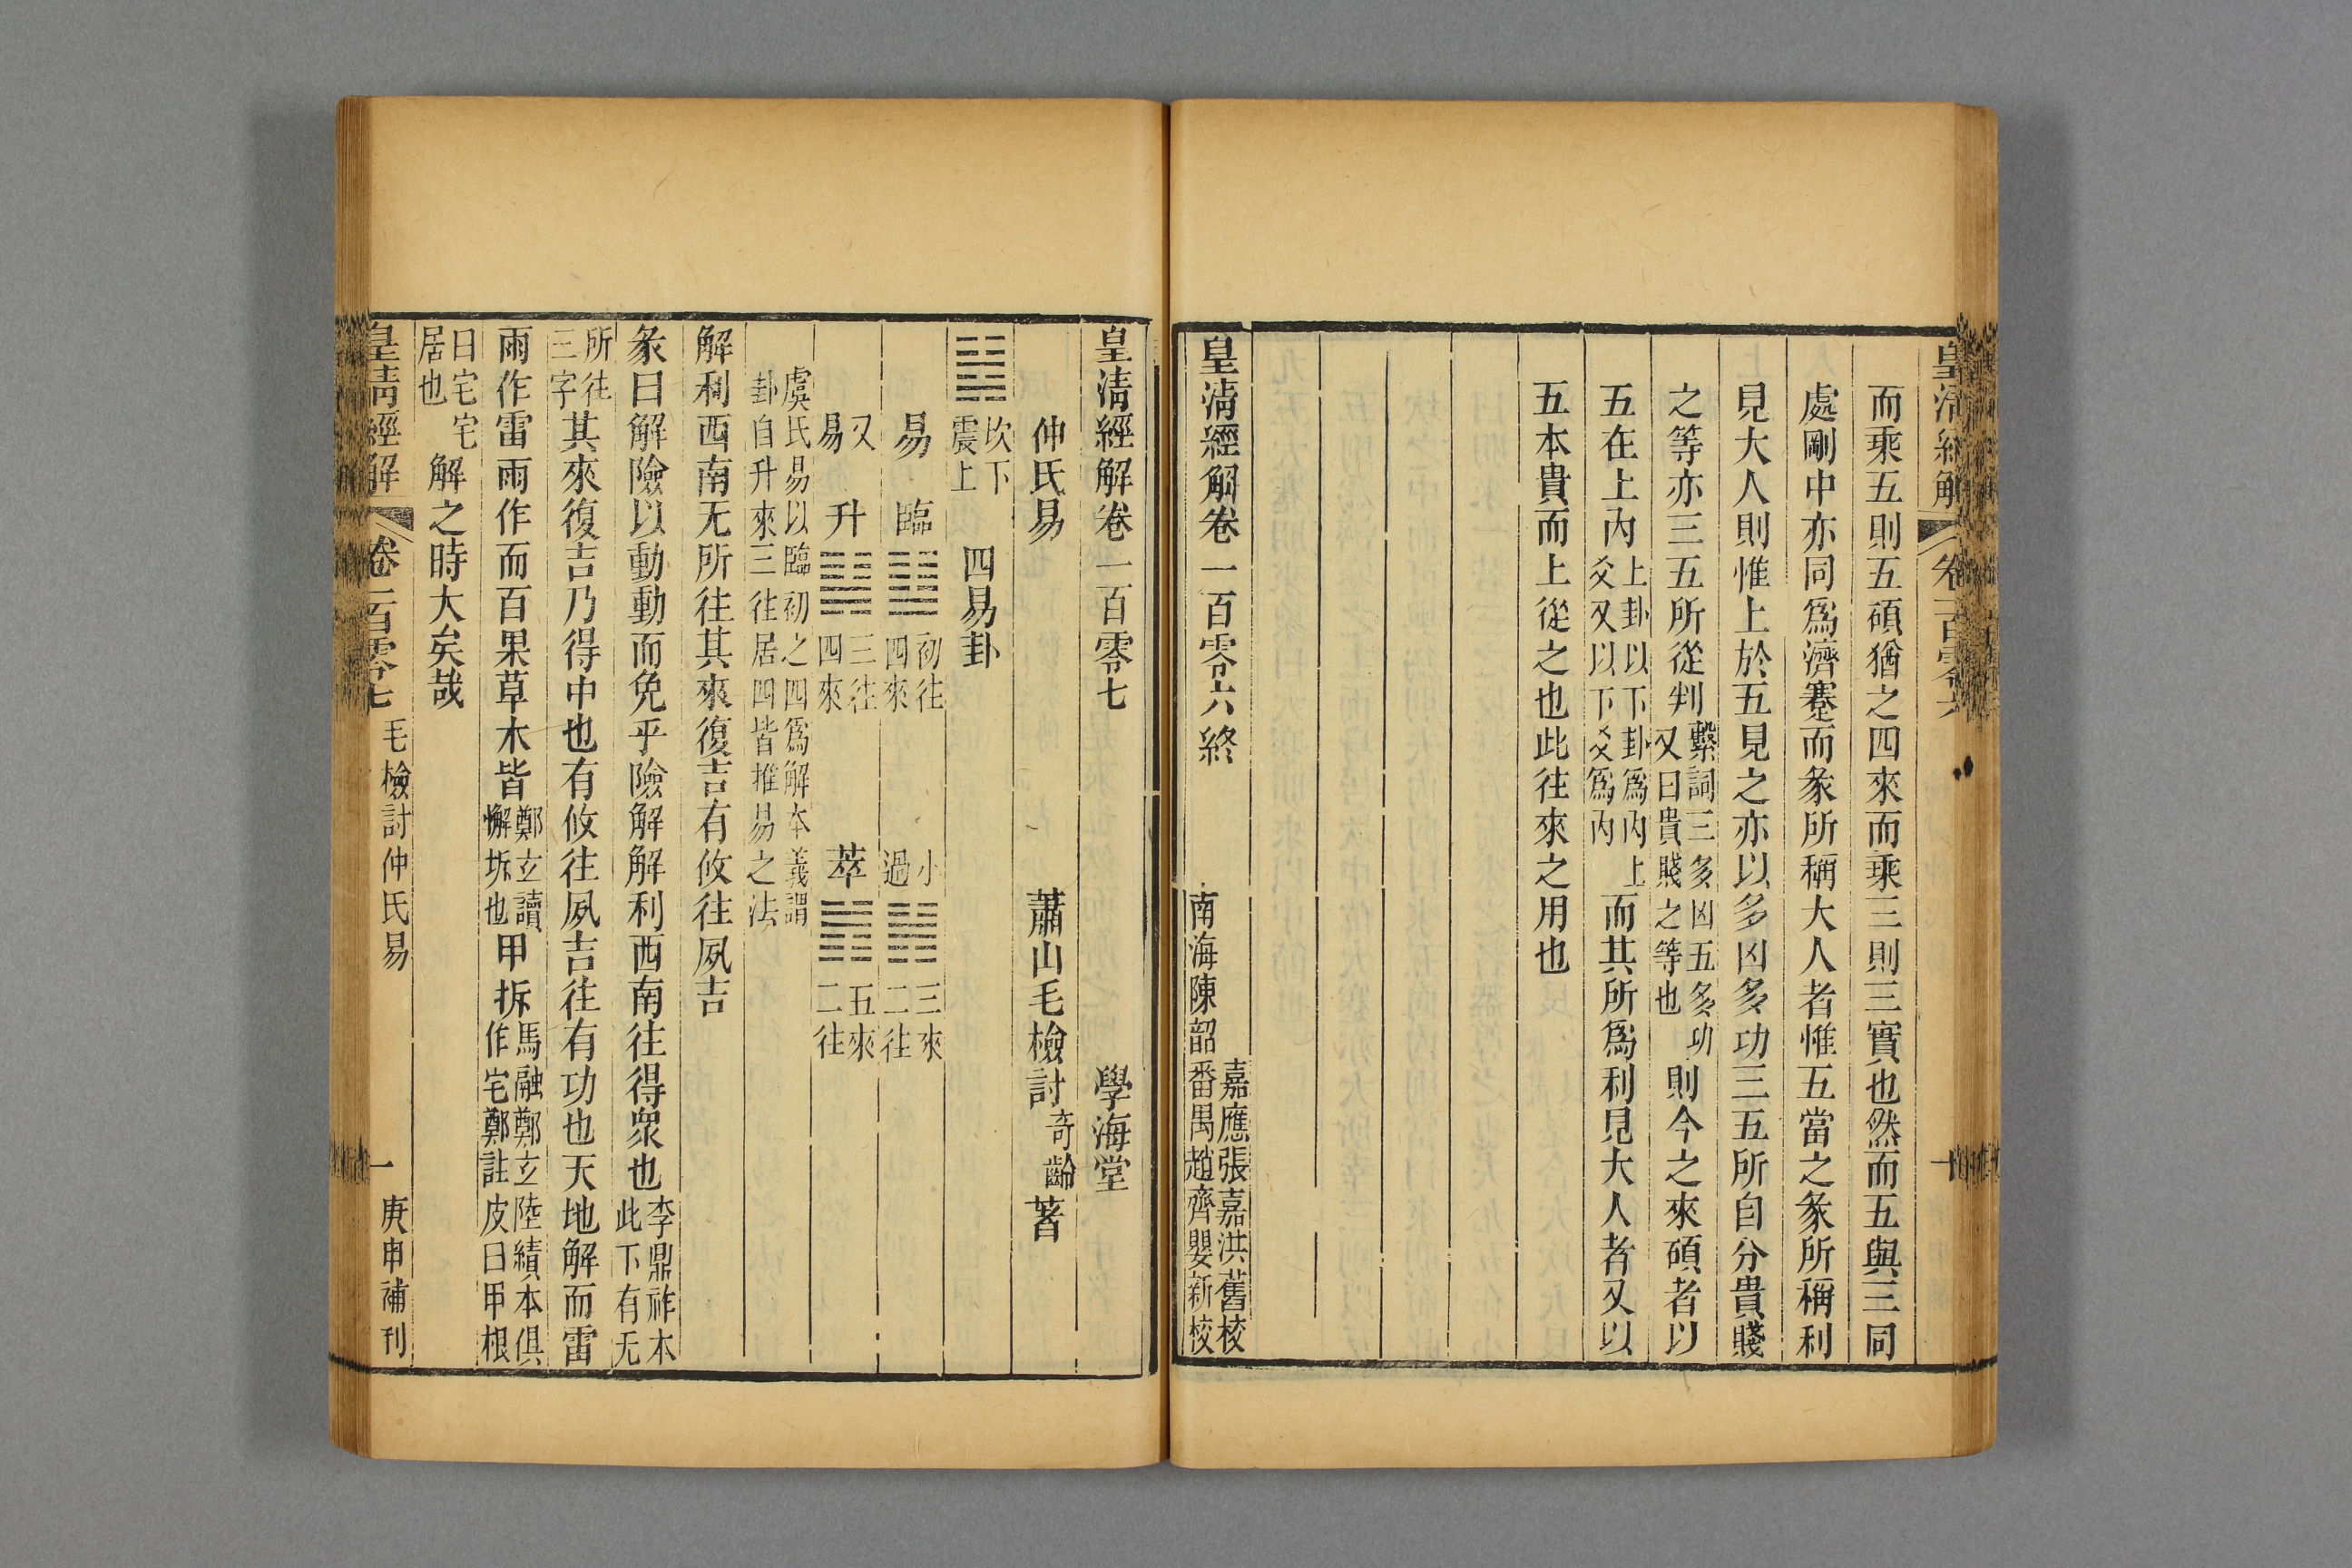 皇清經解 卷一百零六 十
而乘五則五碩猶之四來而乘三則三實也然而五與三同
處剛中亦同爲濟蹇而彖所稱大人者惟五當之彖所稱利
見大人則惟上於五見之亦以多凶多功三五所自分貴賤
之等亦三五所從判繫詞三多凶五多功又曰貴賤之等也則今之來碩者以
五在上內上卦以下卦爲內上爻又以下爻爲內而其所爲利見大人者又以
五本貴而上從之也此往來之用也
皇清經解卷一百零六終
嘉應張嘉洪舊校
南海陳韶番禺趙齊嬰新校
皇清經解卷一百零七 學海堂
仲氏易 蕭山毛檢討奇齡著
䷧坎下震上 四易卦
易 臨䷒初往四來 小過䷽三來二往
又易 升䷭三往四來 萃䷬五來二往
虞氏易以臨初之四爲解本義謂
卦自升來三往居四皆推易之法
解利西南无所往其來復吉有攸往夙吉
彖曰解險以動動而免乎險解解利西南往得衆也李鼎祚本此下有无
所往三字其來復吉乃得中也有攸往夙吉往有功也天地解而雷
雨作雷雨作而百果草木皆鄭玄讀懈坼也甲拆馬融鄭玄陸績本俱作宅鄭註皮曰甲根
曰宅宅居也解之時大矣哉
皇清經解 卷一百零七 毛檢討仲氏易 一 庚申補刊